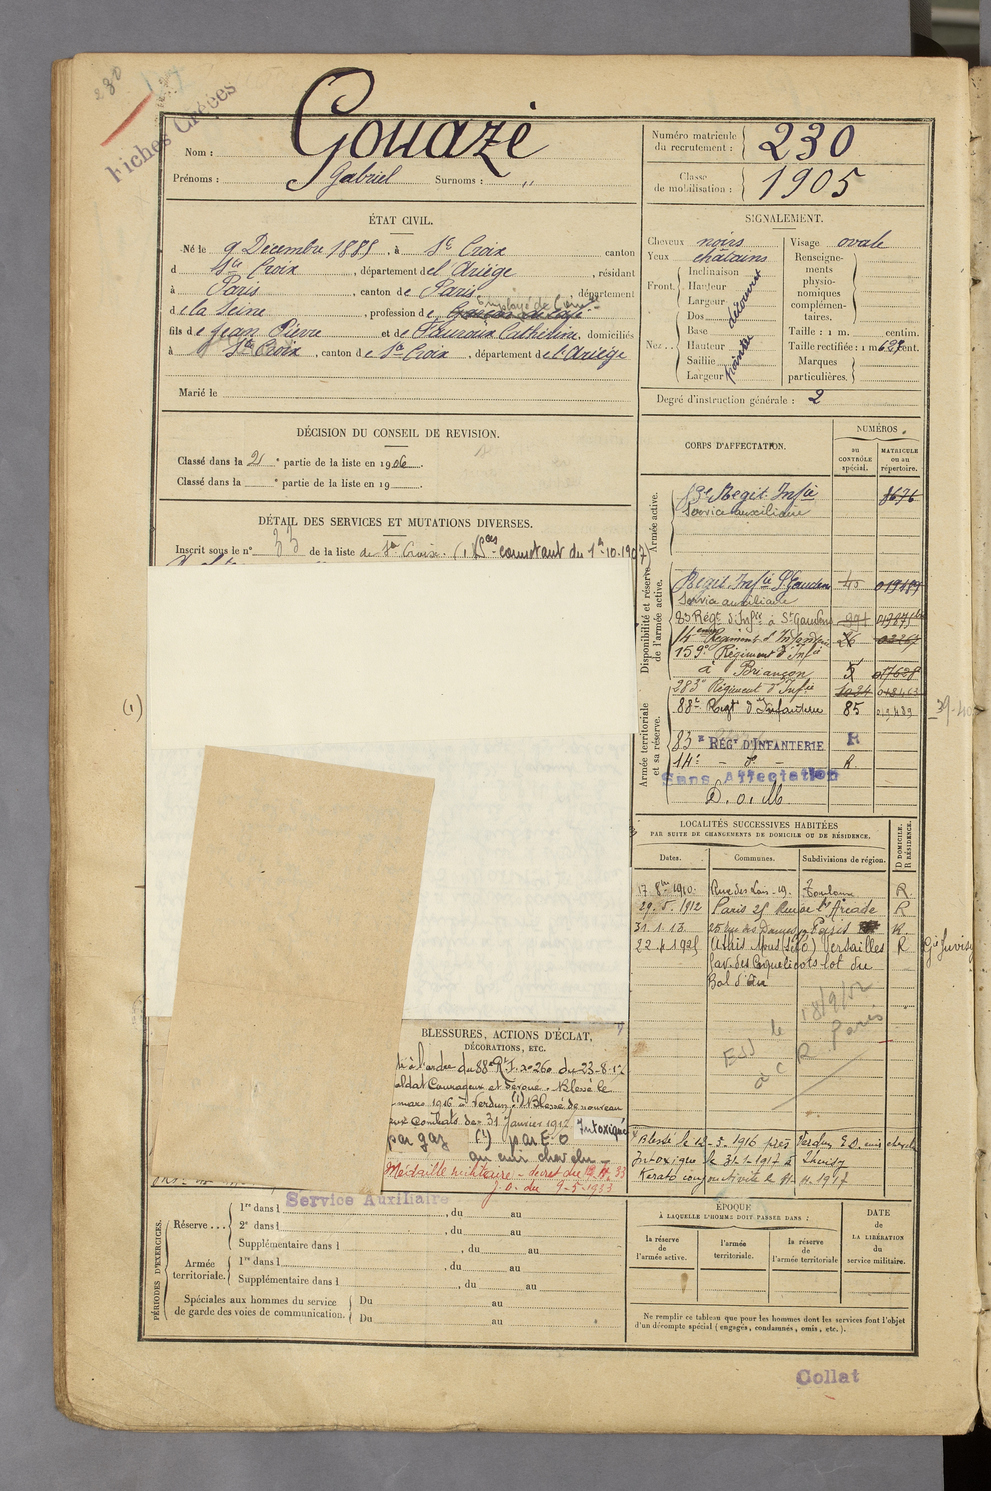 230
Fiches Créées
Nom : Gouazé
Prénoms : Gabriel Surnoms : "
Numéro matricule du recrutement : 230
Classe de mobilisation : 1905
ÉTAT CIVIL.
Né le 9 Décembre 1885, à Ste Croix canton
d Ste Croix, département de l'Ariège, résidant
à Paris, canton de Paris, département
de la Seine, profession de
fils de Jean Pierre et de Catherine, domiciliés
à Ste Croix, canton de Ste Croix, département de l'Ariège
Marié le
SIGNALEMENT.
Cheveux noirs
Yeux châtains
Front. Inclinaison
Hauteur
Largeur
découvert
Nez.. Dos
Base
Hauteur
Saillie
Largeur
Visage ovale
Renseignements physionomiques complémentaires.
Taille : 1 m. centim.
Taille rectifiée : 1 m 627 cent.
Marques particulières.
Degré d'instruction générale : 2
DÉCISION DU CONSEIL DE REVISION.
Classé dans la 2 e partie de la liste en 1906.
Classé dans la e partie de la liste en 19 .
DÉTAIL DES SERVICES ET MUTATIONS DIVERSES.
Inscrit sous le n° 33 de la liste de Ste Croix. comptant du 1er-10-1907)
(1)
CORPS D'AFFECTATION.
NUMÉROS
au CONTRÔLE spécial.
MATRICULE ou au répertoire.
Armée active.
Regt Infie 8676
Service auxiliaire
Disponibilité et réserve de l'armée active.
Regt Infie St Gaudens 45
Service auxiliaire
83 Régt d'Infie à St Gaudens
14eme Régiment d'Infanterie
159e Régiment d'Infie
à Briançon 5 017628
Armée territoriale et sa réserve.
283e Régiment d'Infie 018463
88e Regt d'Infanterie 85 019489
83e RÉGt D'INFANTERIE R
14e - do - R.
Sans Affectation
D. o. M.
LOCALITÉS SUCCESSIVES HABITÉES
PAR SUITE DE CHANGEMENTS DE DOMICILE OU DE RÉSIDENCE.
Dates. Communes. Subdivisions de région. D DOMICILE. R RÉSIDENCE.
17 8bre 1910. Rue des Lois-19. Toulouse R.
29. 5. 1912 Paris 25 Rue de l'Arcade R
31. 1. 13 25 rue des Dames Paris R.
22 4 1925 (Athis Mons S&O) Versailles R
av. des Coquelicots lot du
Bel Air
18/9/52
le
Paris
BLESSURES, ACTIONS D'ÉCLAT,
DÉCORATIONS, ETC.
à l'ordre du 88e R.I. no 260 du 23-8-
oldat Courageux et dévoué. Blessé le
mars 1916 à Verdun. (1) Blessé de nouveau
aux combats de 31 Janvier 1917 Intoxiqué
par gaz (1) par E. O
au cuir chevelu
Médaille militaire - décret du 33
J.O. du 9-5-1933
Blessé le 12-3-1916 près Verdun E.O. cuir chevelu
Intoxiqué le 31-1-1917 à
Kérato conjonctivite le 11-4-1917
PÉRIODES D'EXERCICES.
Service Auxiliaire
Réserve... 1re dans l , du au
2e dans l , du au
Supplémentaire dans l , du au
Armée territoriale. 1re dans l , du au
Supplémentaire dans l , du au
Spéciales aux hommes du service de garde des voies de communication. Du au
Du au
ÉPOQUE
À LAQUELLE L'HOMME DOIT PASSER DANS :
la réserve de l'armée active.
l'armée territoriale.
la réserve de l'armée territoriale
DATE de LA LIBÉRATION du service militaire.
Ne remplir ce tableau que pour les hommes dont les services font l'objet
d'un décompte spécial (engagés, condamnés, omis, etc.).
Collat